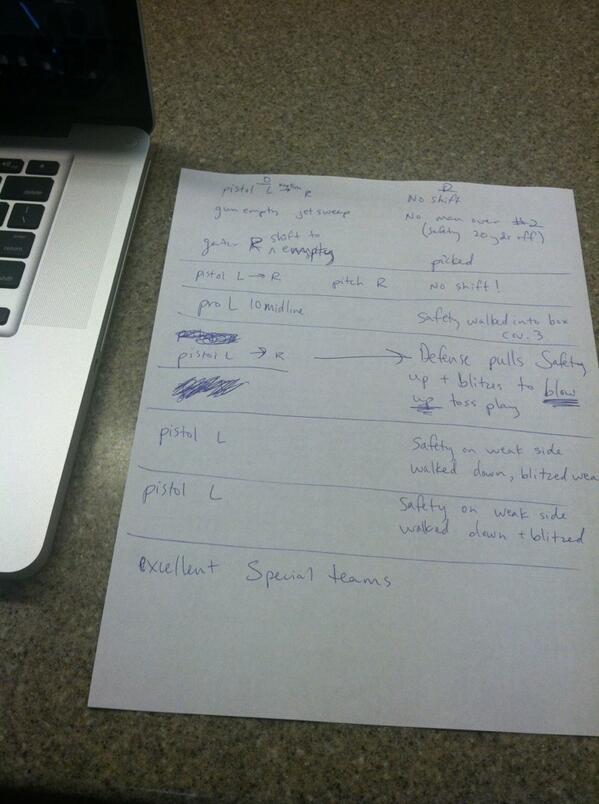 O D
pistol L motion → R No shift
gun empty jet sweep No man over #2
(safety 20 yds off)
R shift to empty picked
pistol L → R pitch R No shift!
pro L 10 midline Safety walked into box
cov. 3
pistol L → R → Defense pulls Safety
up + blitzes to blow
up toss play
pistol L Safety on weak side
walked down, blitzed wea
pistol L Safety on weak side
walked down + blitzed
excellent Special teams
delete
return
shift